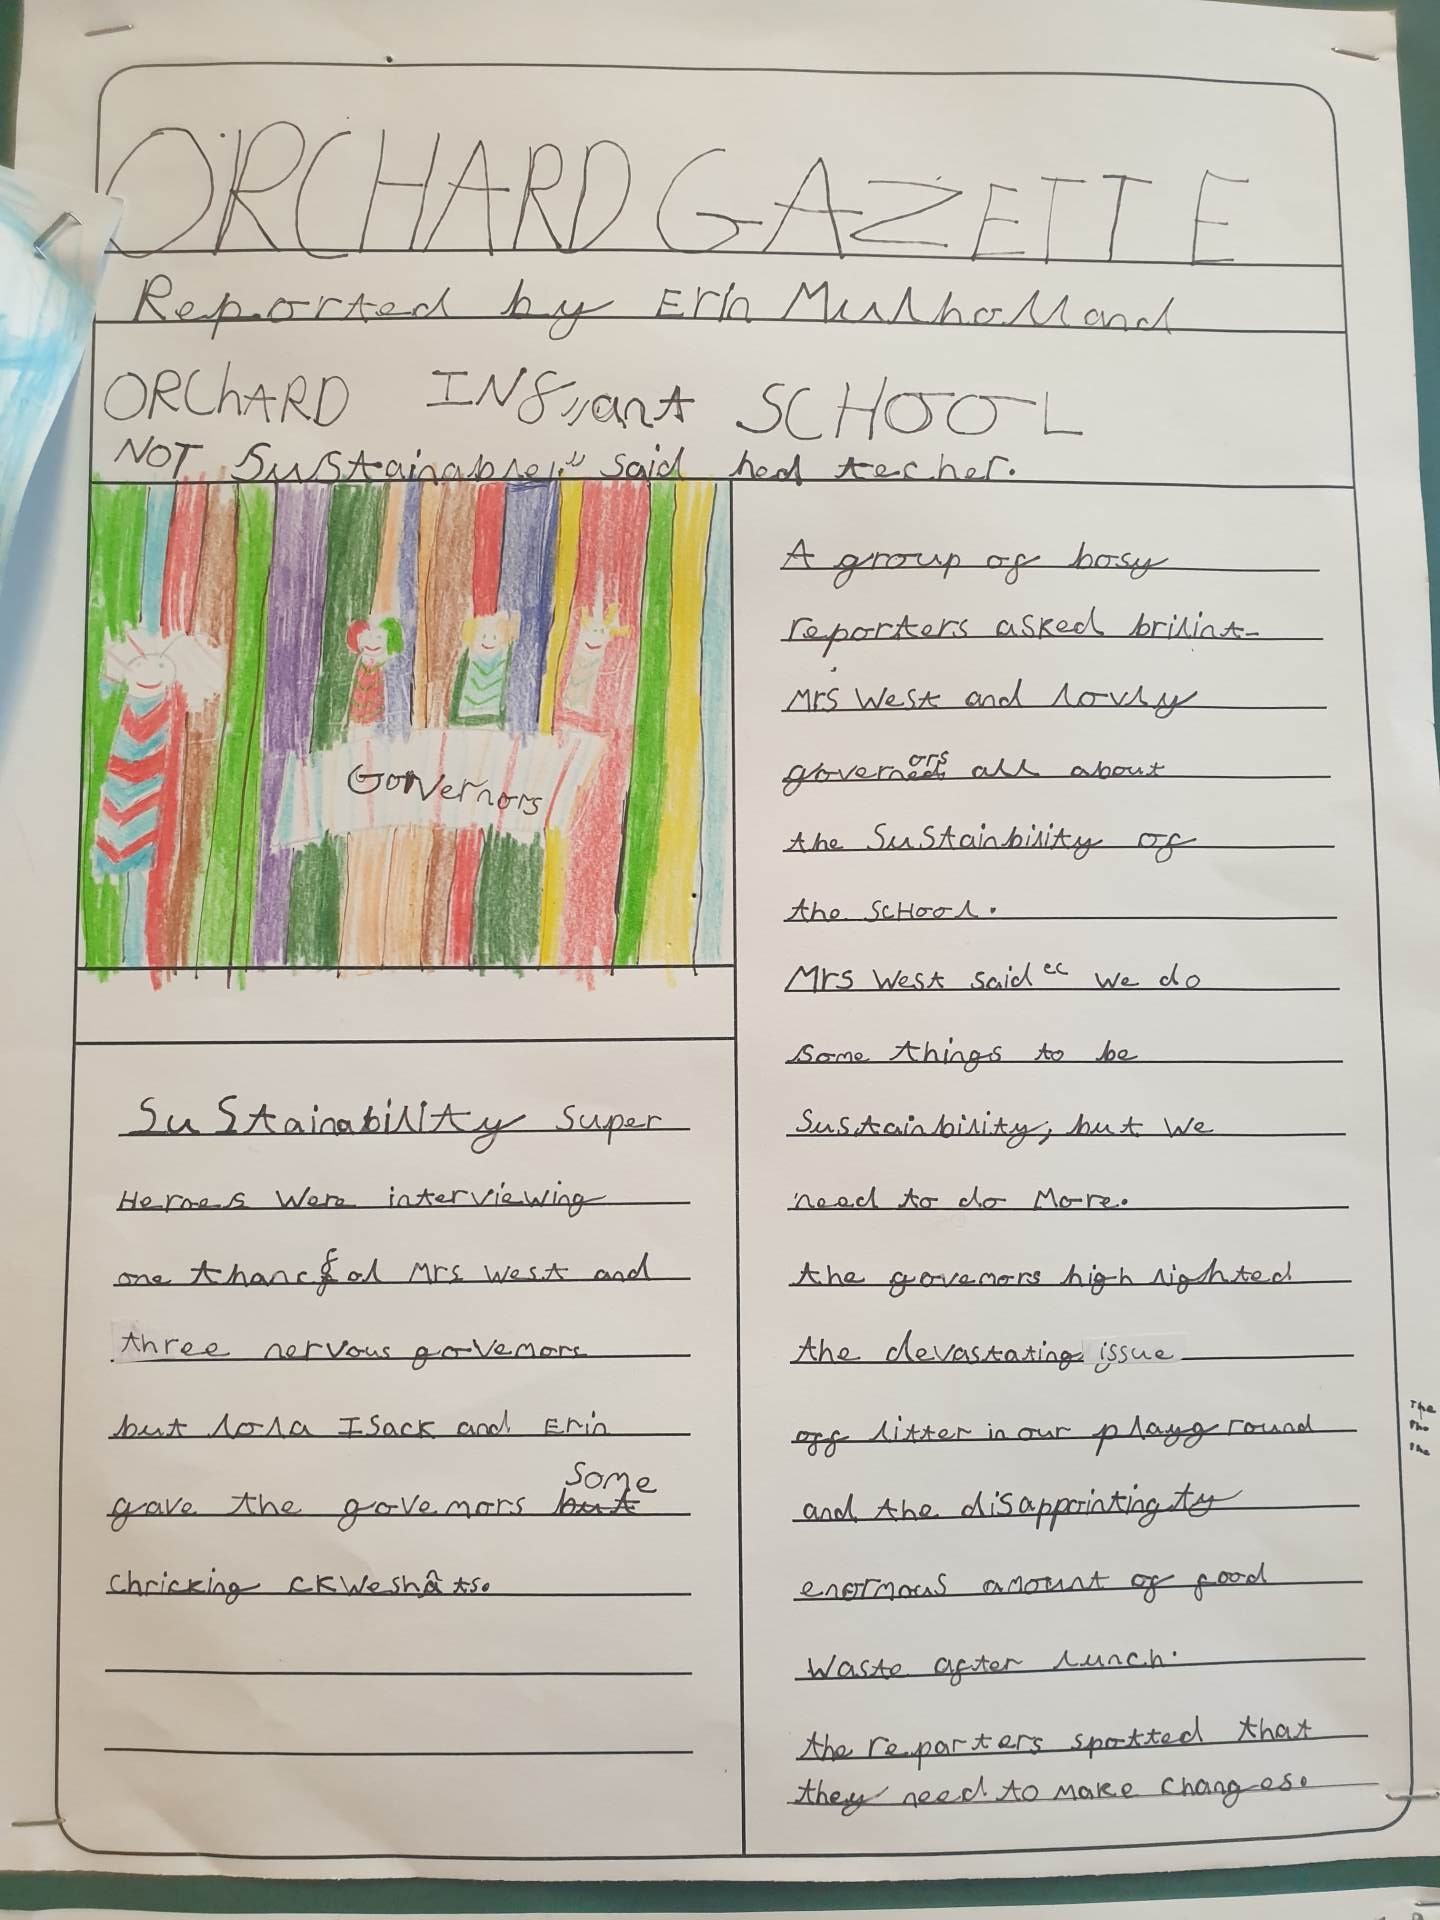 ORCHARD GAZETTE
Reported by Erin Mulholland
ORChARD INfant SCHOOL
NOT Sustainable" said hed techer.
Governors
Sustainability super
Heroes were interviewing
one thancfol Mrs West and
three nervous governors
but lola Isack and Erin
some
gave the governors but
chricking ckweshats.
A group of bosy
reporters asked brilint
Mrs West and lovly
governors all about
the Sustainbility of
the scHool.
Mrs West said “ we do
some things to be
Sustainbility, but we
need to do More.
the governors high lighted
the devastating issue
off litter in our playground
and the disappointingty
enormous amount of food
waste after lunch.
the reparters spotted that
they need to make changes.